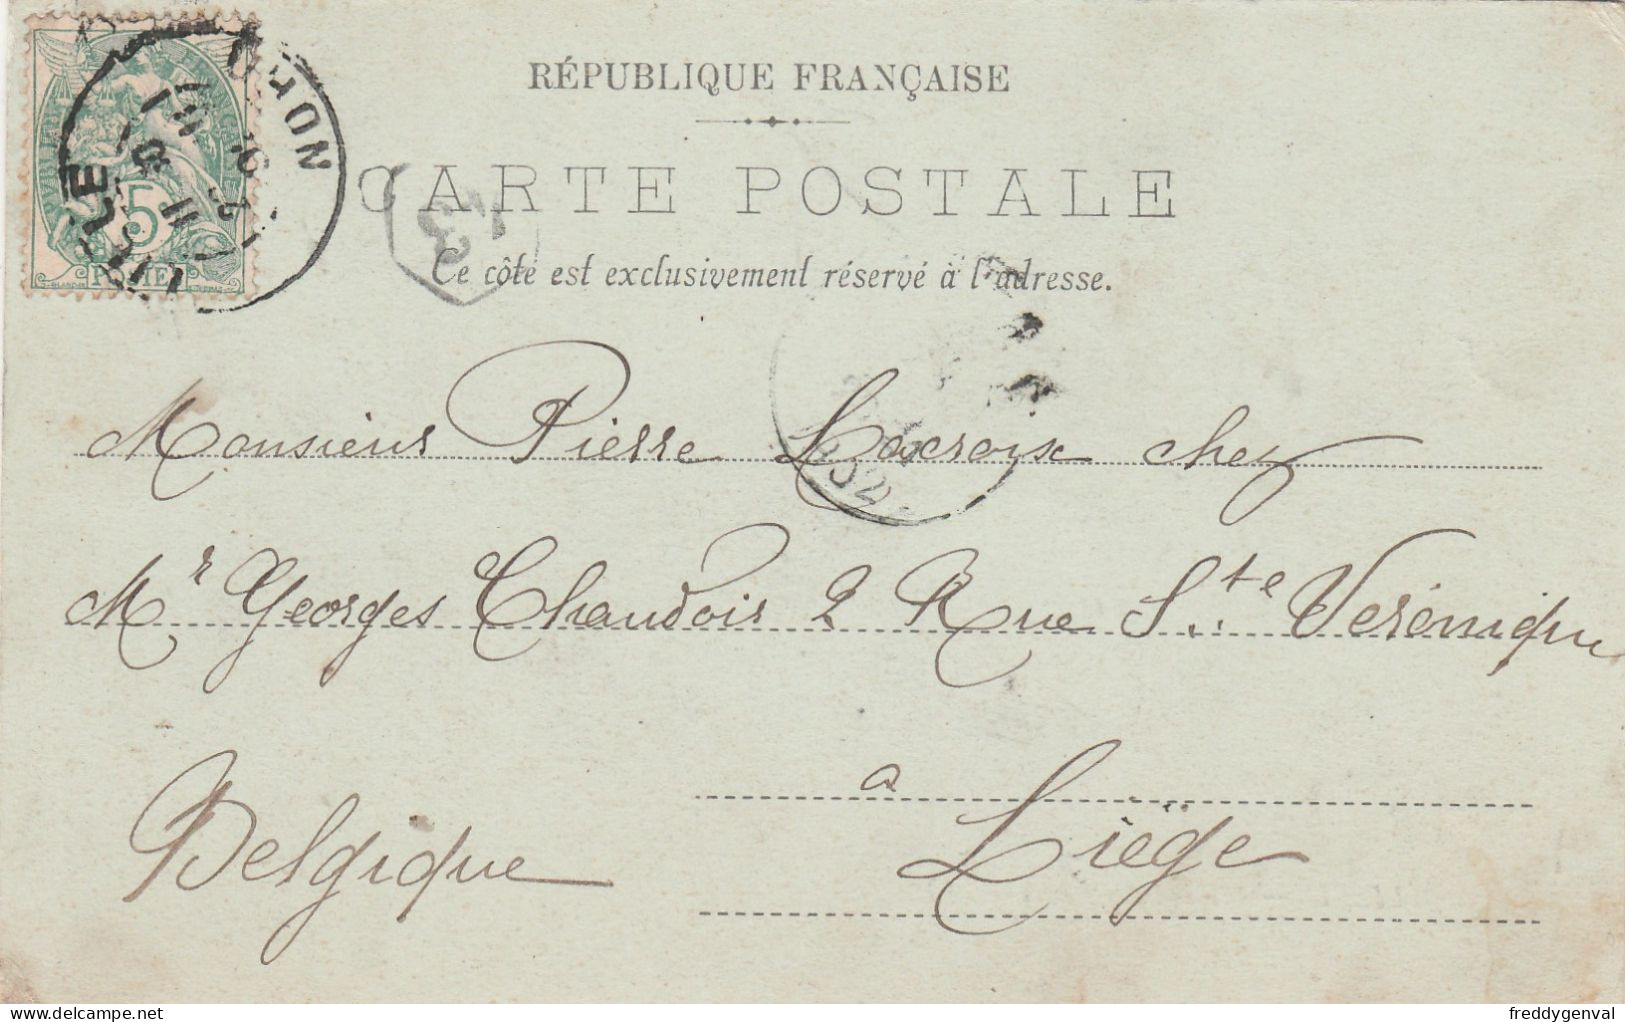 RÉPUBLIQUE FRANÇAISE
CARTE POSTALE
Ce côté est exclusivement réservé à l'adresse.
5
POSTE
LILLE
NORD
Monsieur Pierre Lacroix chez
Mr Georges Chaudoir 2 Rue Ste Verónique
Belgique
a Liège
freddygenval